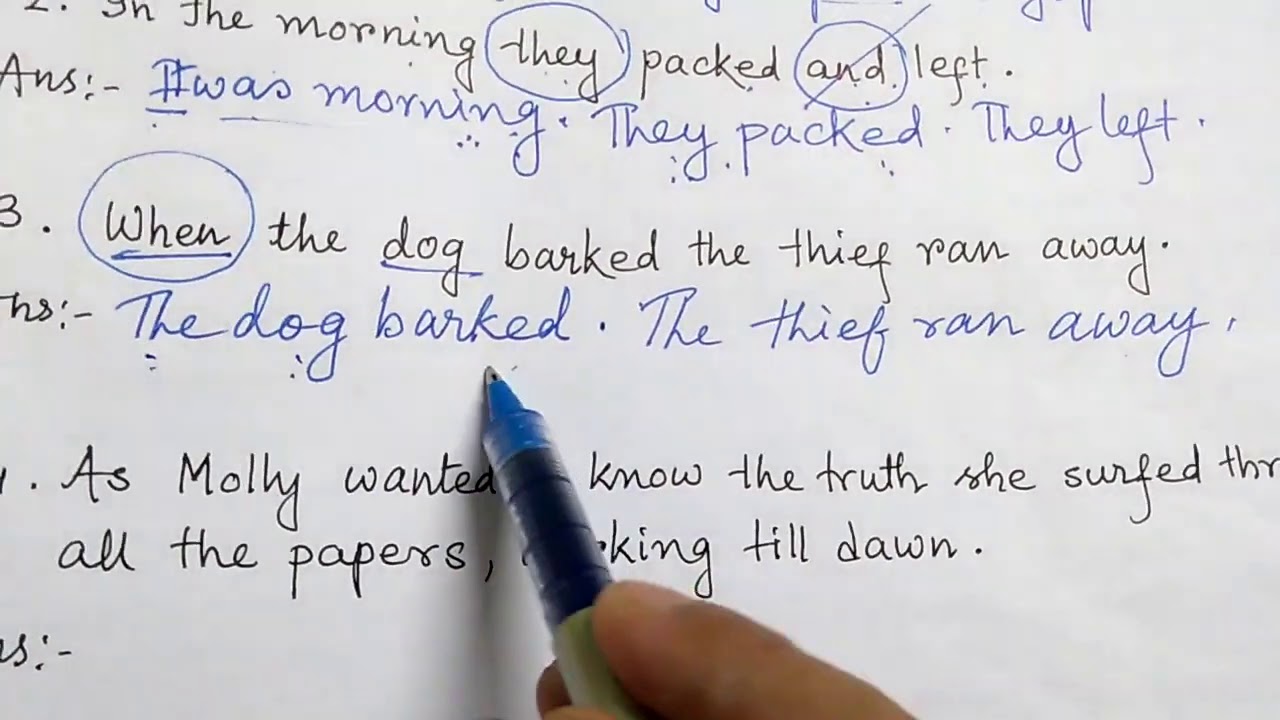 2. In the morning they packed and left.
Ans:- It was morning. They packed. They left.
3. When the dog barked the thief ran away.
ns:- The dog barked. The thief ran away.
. As Molly wanted know the truth she surfed thr
all the papers, king till dawn.
s:-